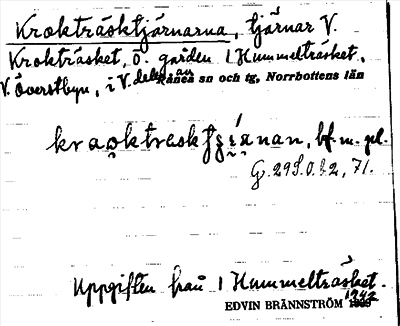 Krokträsktjärnarna, tjärnar V.
Krokträsket, ö. gården 1 Hummelträsket,
V. överstbyn, i V. delen av
Råneå sn och tg, Norrbottens län
bf. m. pl.
G. 29 S. O. b 2, 71.
Uppgiften från 1 Hummelträsket.
1942
EDVIN BRÄNNSTRÖM